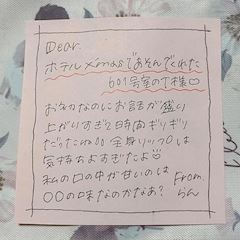 Dear.
ホテルxmasであそんでくれた
601号室のT様♡
お初なのにお話が盛り
上がりすぎて時間ギリギリ
だったねoo 全身リップ〇は
気持ちよすぎたよ
私の口の中が甘いのは
〇〇の味なのかなあ?
From.
らん